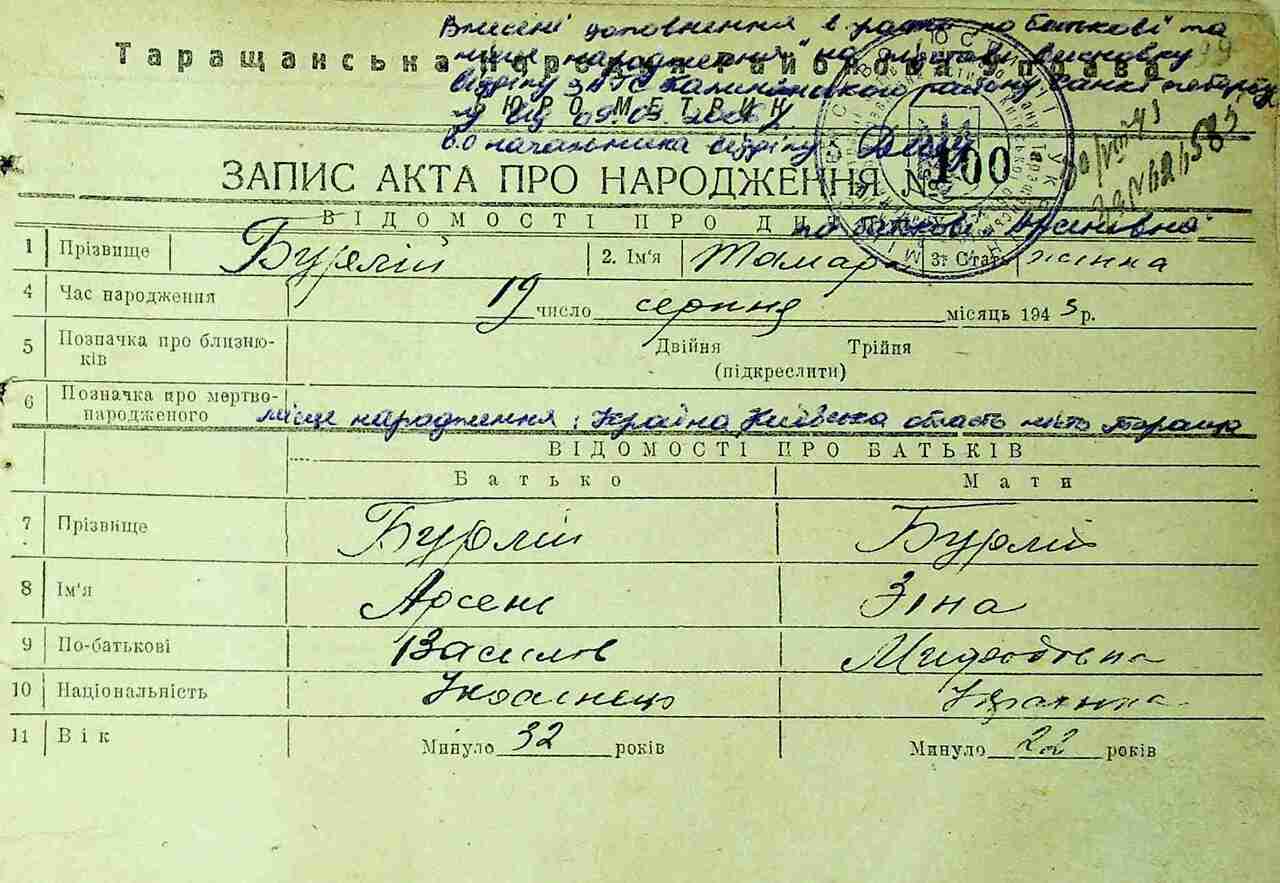 Внесені доповнення в графи по батькові та
Таращанська Народня Районова Управа
"місце народження" на підставі висновку
відділу ЗАГС Калінінського району Санкт петербур
БЮРО МЕТРИК
09.03.2006
в.о начальника відділу
ЗАПИС АКТА ПРО НАРОДЖЕННЯ № 100
ВІДОМОСТІ ПРО ДИ
по батькові Арсенівна
1 Прізвище Бурлій 2. Ім'я Тамара 3. Стать жінка
4 Час народження 19 число серпня місяць 1943 р.
5 Позначка про близню-
ків
Двійня Трійня
(підкреслити)
6 Позначка про мертво-
народженого
місце народження: Україна Київська область місто Тараща
ВІДОМОСТІ ПРО БАТЬКІВ
Батько Мати
7 Прізвище Бурлій Бурлій
8 Ім'я Арсень Зіна
9 По-батькові Василів
10 Національність Українець Українка
11 Вік Минуло 32 років Минуло 22 років